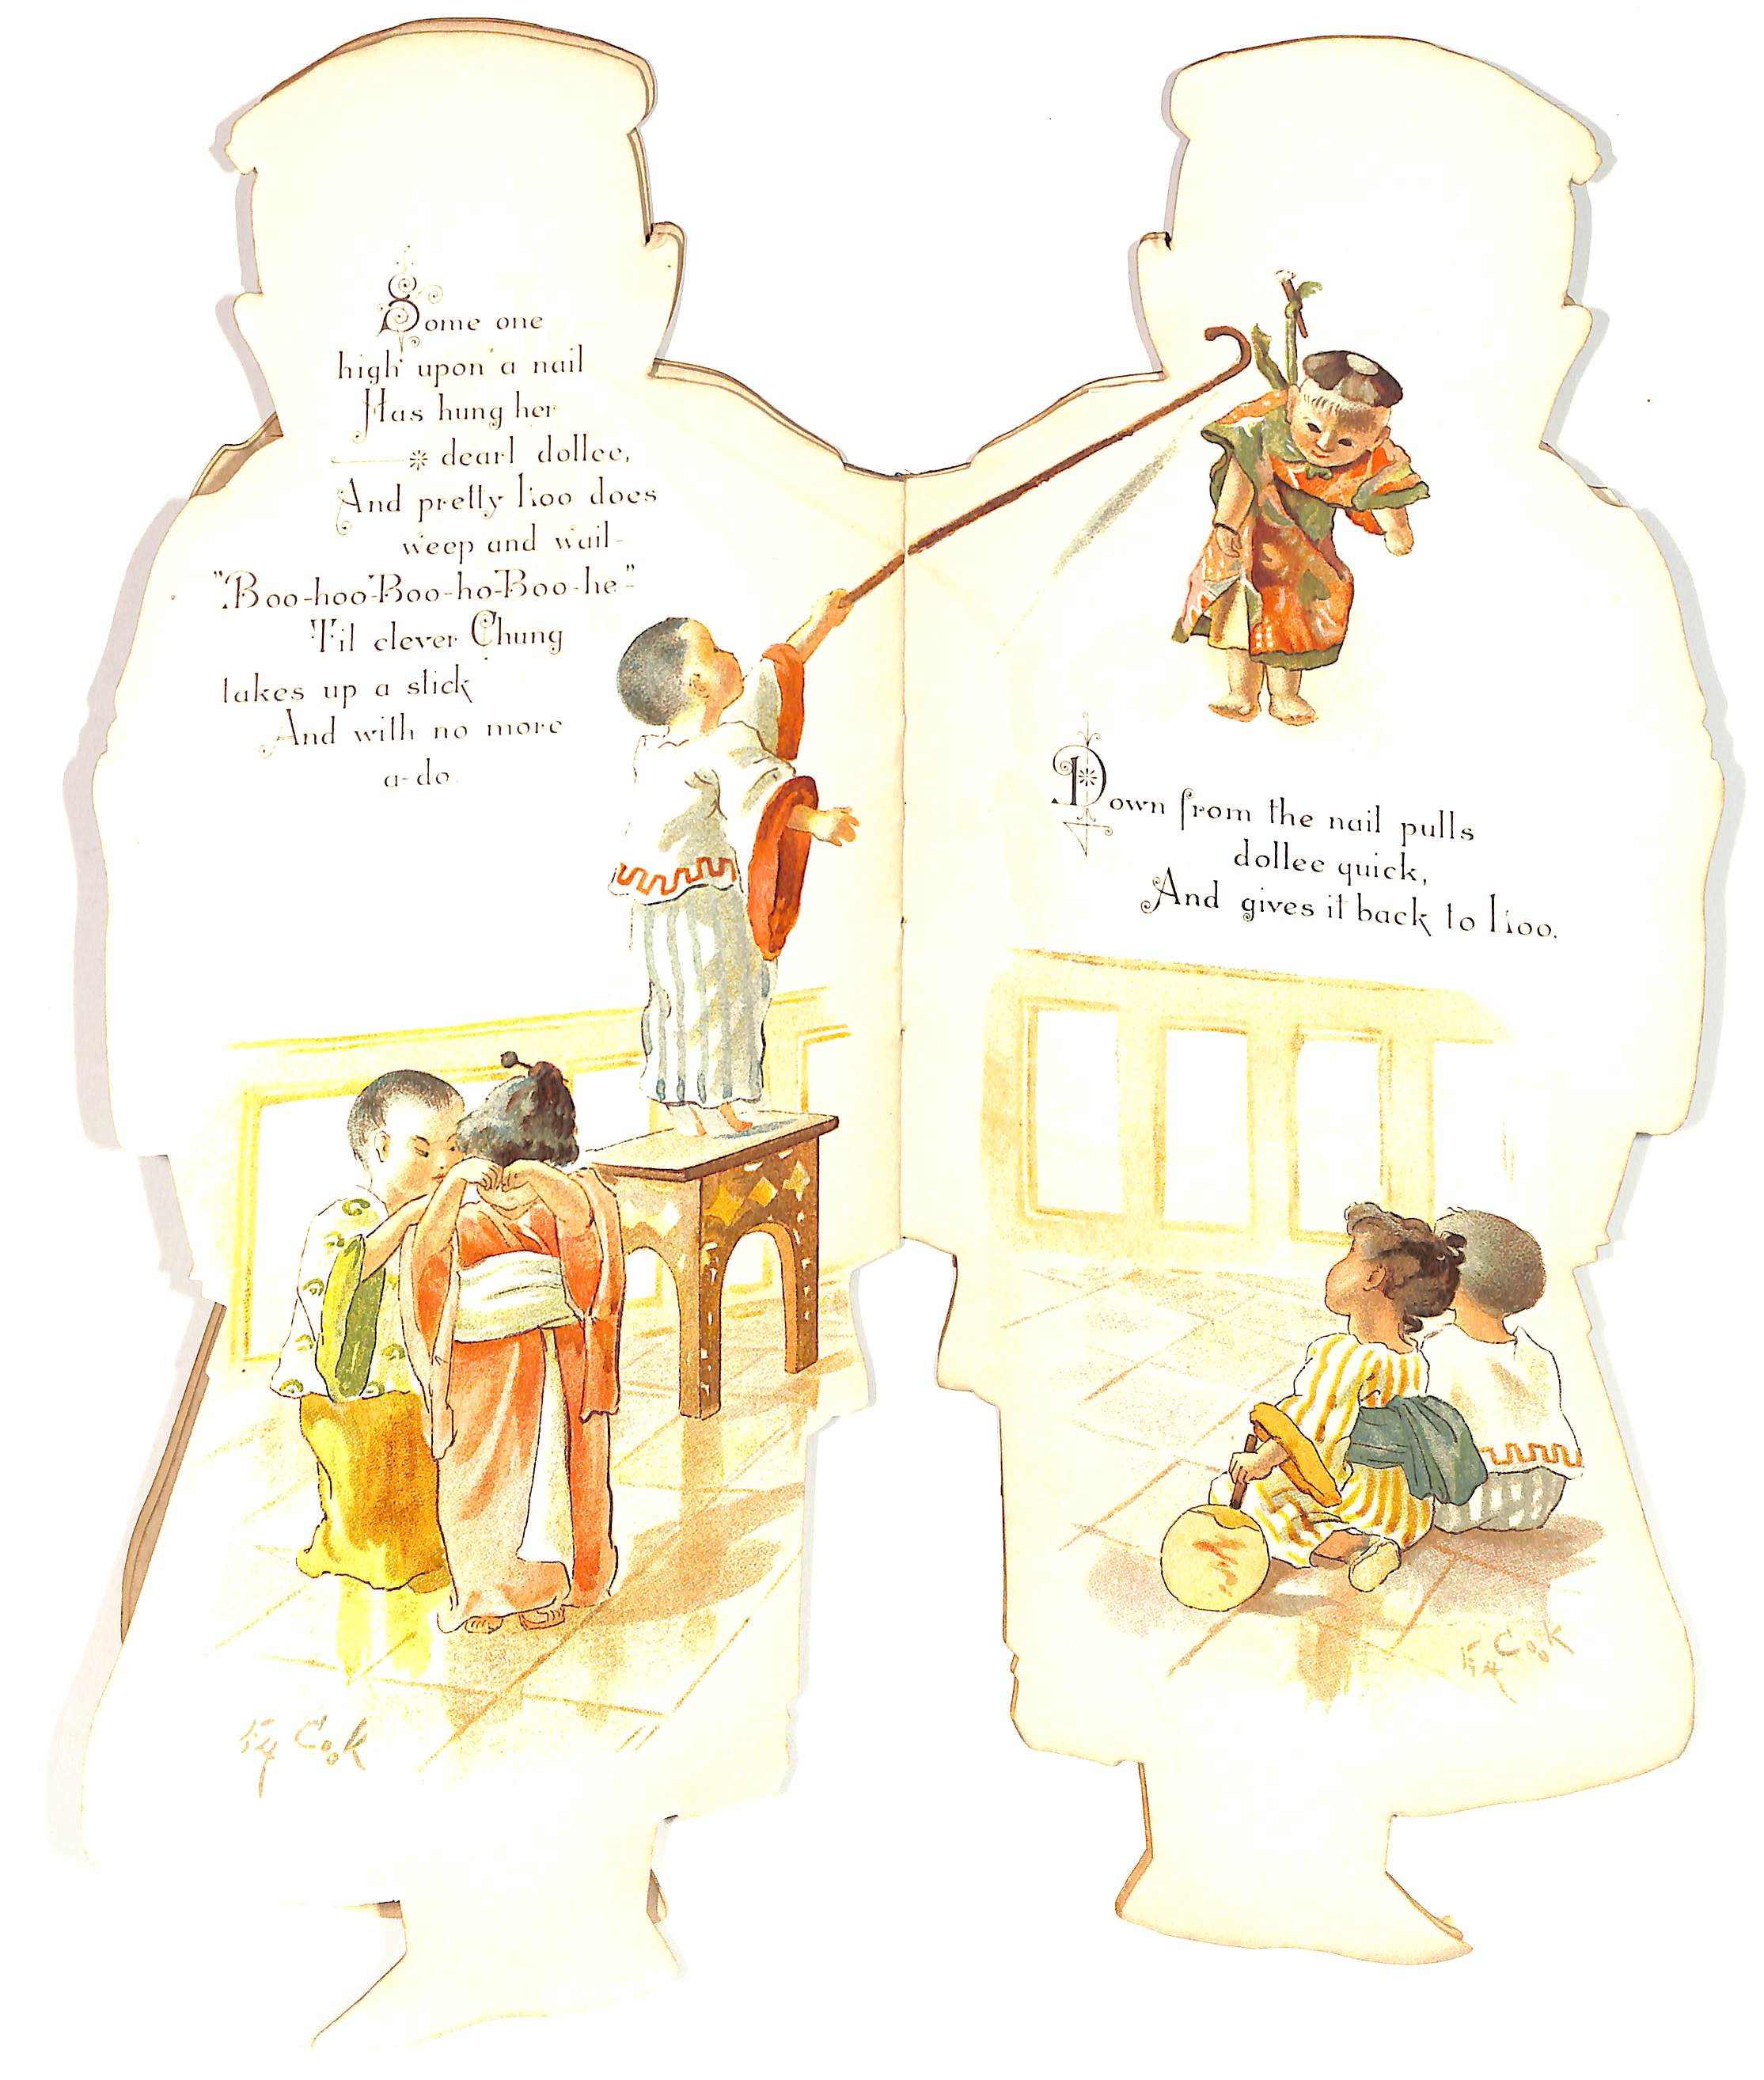 Some one
high upon a nail
Has hung her
dearl dollee,
And pretty Koo does
weep and wail-
"Boo-hoo-Boo-ho-Boo-he-"
'Til clever Chung
takes up a stick
And with no more
a-do.
Down from the nail pulls
dollee quick,
And gives it back to Koo.
Cook
Cook